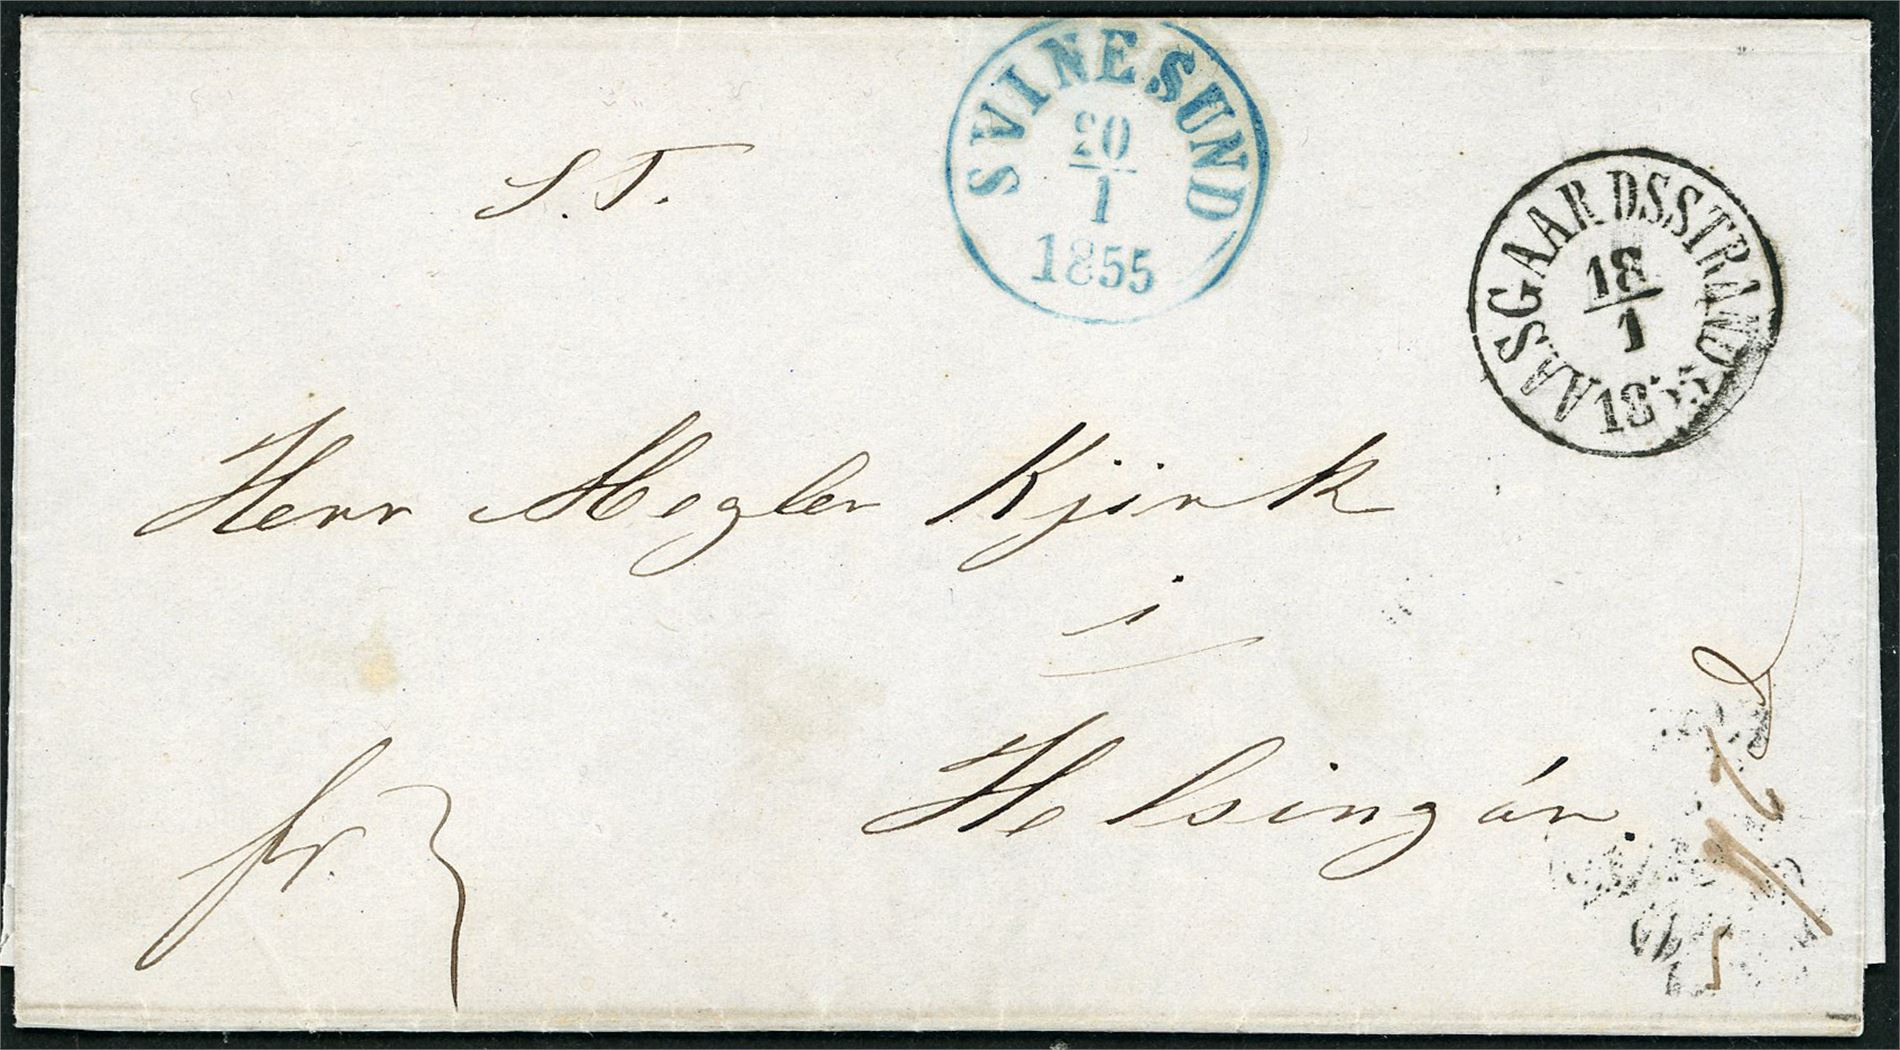 SVINESUND
20
1
1855
AASGAARDSSTRAND
18
1
1855
S. T.
Herr Megler Kjirk
i
Helsingör.
fr.